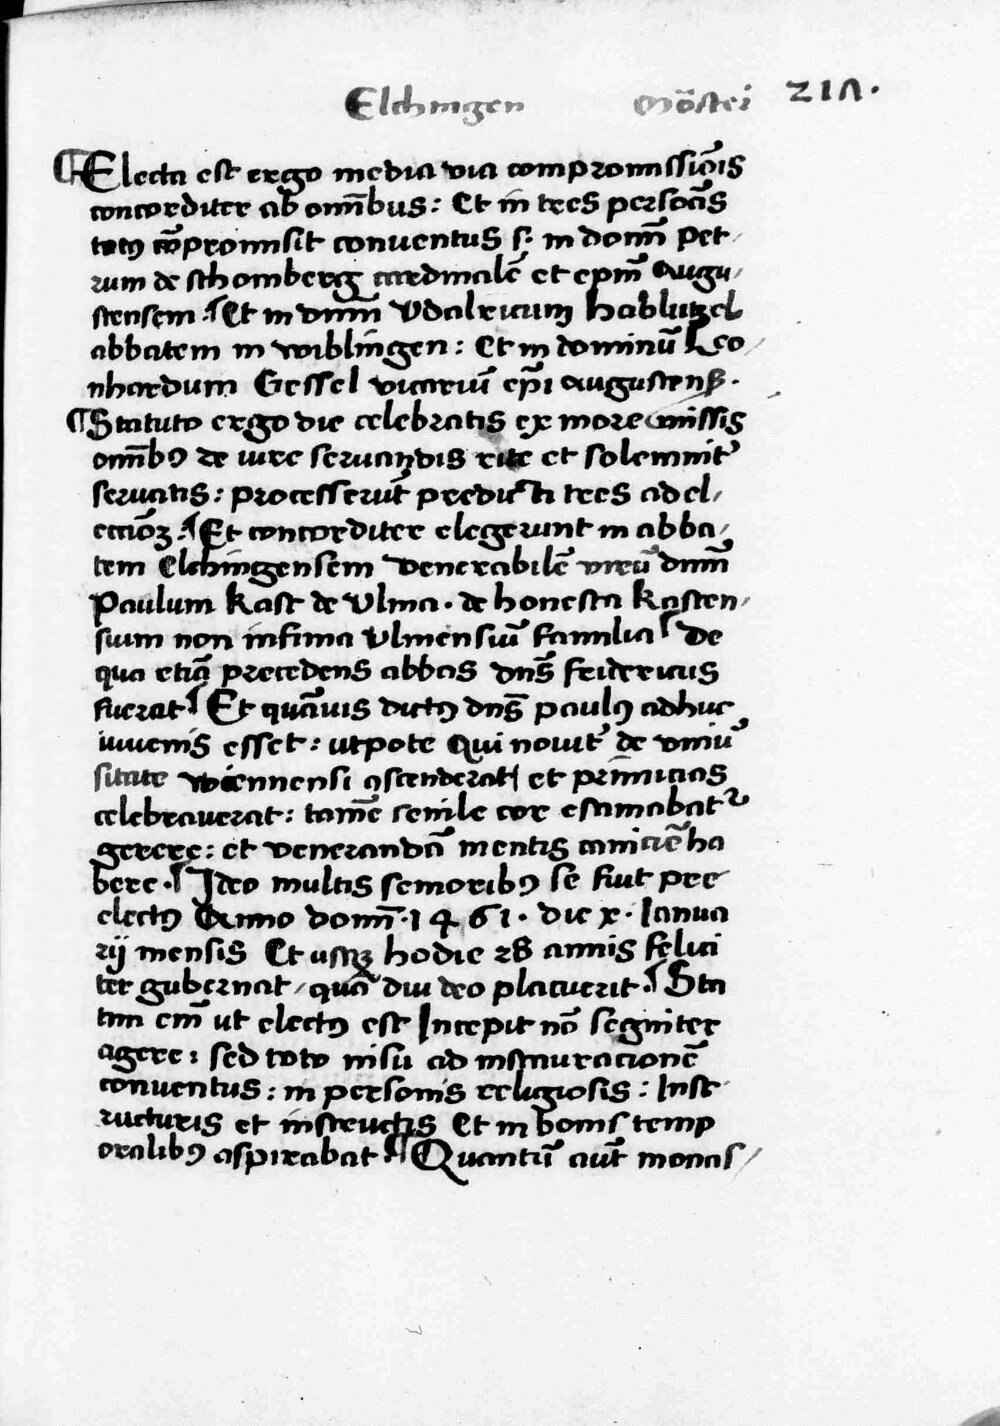 Elchingen mōstei 217.
¶Electa est ergo media via compromissiōis
concorditer ab om̄ibus: Et in tres persoās
totꝯ cōpromisit conventus s. in dom̄ pet-
rum de schomberg cardinalē et ep̄m Augu-
stensem. ¶Et in dn̄m Vdalricum hablutzel
abbatem in wiblingen: Et in dominū Leo-
nhardum Gessel vicariū ep̄i augustenß.
¶Statuto ergo die celebratis ex more missis
om̄ibꝯ de iure servandis rite et solemnit᷑
servatis: processerūt predicti tres ad el-
ectiōꝫ. ¶Et concorditer elegerunt in abba-
tem Elchingensem venerabilē virū dn̄m
Paulum Kast de Vlma. de honesta Kasten-
sium non infima Vlmensiū familia ¶De
qua etiā precedens abbas dn̄s fridericus
fuerat ¶Et quāvis dictꝯ dn̄s paulꝯ adhuc
iuvenis esset: utpote qui novit᷑ de vniv᷑
sitate wiennensi ꝯscenderat et primicias
celebraverat: tamē senile cor estimabat᷑
gerere: et venerandā mentis caniciē ha
bere. ¶Ideo multis senioribꝯ se fuit pre
electꝯ Anno domī. 1461. die x. Ianua
rij mensis Et usqꝫ hodie 28 annis felici
ter gubernat, quā diu deo placuerit. ¶Sta
tim em̄ ut electꝯ est Incepit nō segniter
agere: sed toto nisu ad instauracionē
conventus: in personis religiosis: Inst-
ructuris et instructis Et in bonis temp
oralibꝯ aspirabat ¶Quantū aut̄ monas-